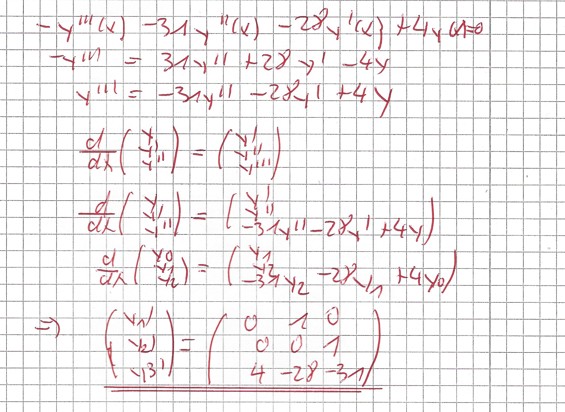 -y'''(x) - 31y''(x) - 28y'(x) + 4y(x)=0
-y''' = 31y'' + 28y' - 4y
y''' = -31y'' - 28y' + 4y
d/dx (y y' y'') = (y' y'' y''')
d/dx (y y' y'') = (y' y'' -31y'' - 28y' + 4y)
d/dx (y0 y1 y2) = (y1 y2 -31y2 - 28y1 + 4y0)
=> (y1' y2' y3') = (0 1 0
0 0 1
4 -28 -31)